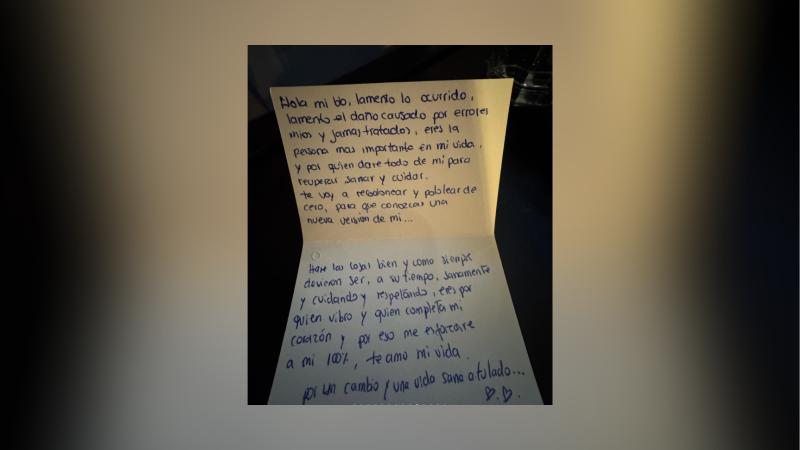 Hola mi bb, lamento lo ocurrido,
lamento el daño causado por errores
mios y jamas tratados, eres la
persona mas importante en mi vida,
y por quien dare todo de mi para
recuperar, sanar y cuidar.
te voy a reestionear y pololear de
cero, para que conozcas una
nueva versión de mi...
Hare las cosas bien y como siempre
devieron ser, a su tiempo, sanamente
y cuidando y respetando, eres por
quien vibro y quien completa mi
corazón y por eso me esforzare
a mi 100%, te amo mi vida.
por un cambio y una vida sana a tu lado...